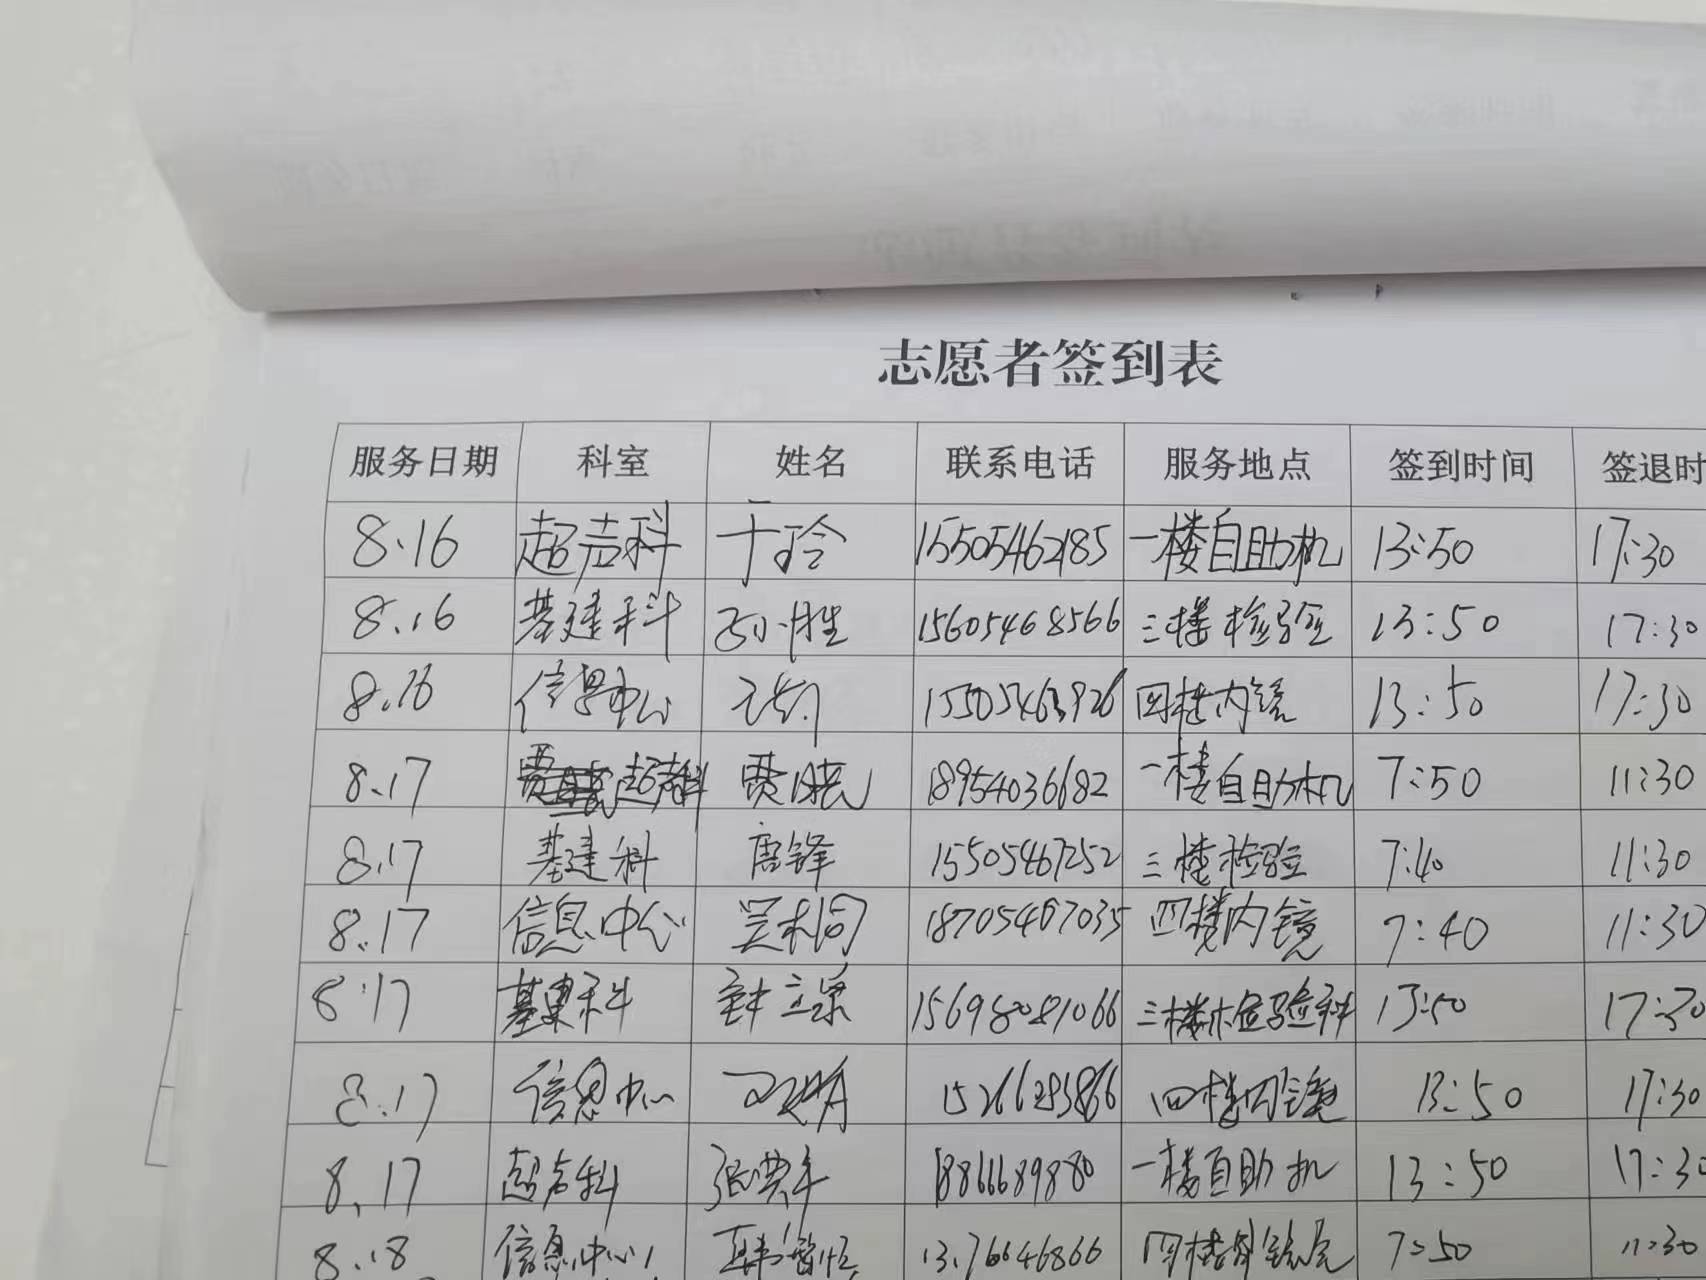 志愿者签到表
服务日期 科室 姓名 联系电话 服务地点 签到时间 签退时
8.16 超声科 于玲 15505462185 一楼自助机 13:50 17:30
8.16 基建科 孙胜 15605468566 三楼检验 13:50 17:30
8.16 信息中心 15505463926 四楼内镜 13:50 17:30
8.17 超声科 贾晓 18954036682 一楼自助机 7:50 11:30
8.17 基建科 唐锋 15505467252 三楼检验 7:40 11:30
8.17 信息中心 18705467035 四楼内镜 7:40 11:30
8.17 基建科 15698081066 三楼检验科 13:50 17:30
8.17 信息中心 四楼内镜 13:50 17:30
8.17 超声科 18866689880 一楼自助机 13:50 17:30
8.18 信息中心 13176646866 四楼 7:50 11:30